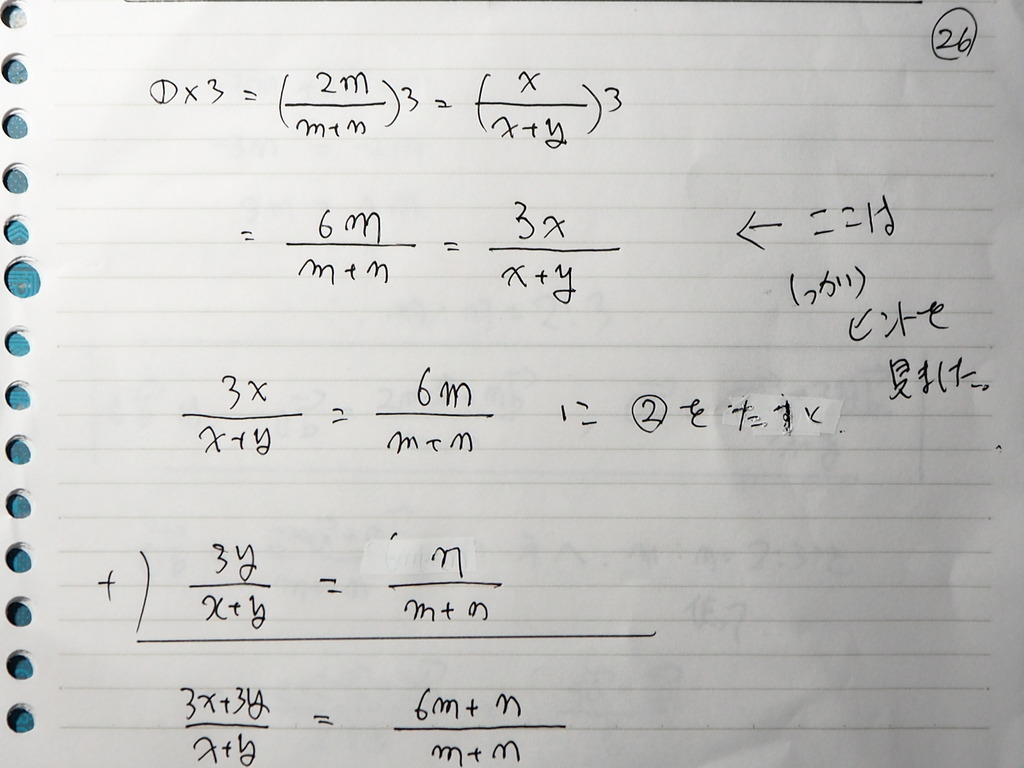 26
①×3 = (2m/(m+n))3 = (x/(x+y))3
= 6m/(m+n) = 3x/(x+y) ← ここは
ヒントを
見ました。
3x/(x+y) = 6m/(m+n) に ②をたすと.
+) 3y/(x+y) = n/(m+n)
(3x+3y)/(x+y) = (6m+n)/(m+n)